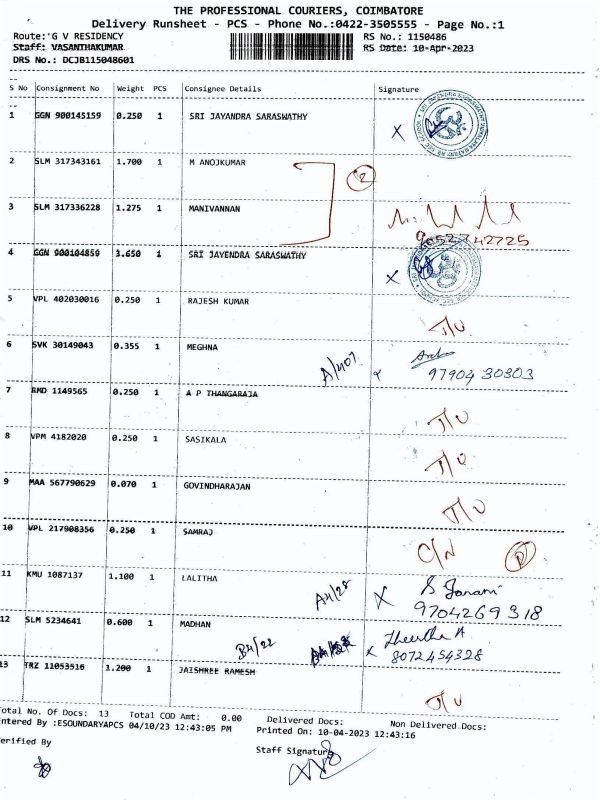 THE PROFESSIONAL COURIERS, COIMBATORE
Delivery Runsheet - PCS - Phone No.:0422-3505555 - Page No.:1
Route:'G V RESIDENCY
RS No.: 1150486
Staff: VASANTHAKUMAR
RS Date: 10-Apr-2023
DRS No.: DCJB115048601
S No Consignment No Weight PCS Consignee Details Signature
1 GGN 900145159 0.250 1 SRI JAYANDRA SARASWATHY X
2 SLM 317343161 1.700 1 M ANOJKUMAR 2
3 SLM 317336228 1.275 1 MANIVANNAN
9052742725
4 GGN 900104859 3.650 1 SRI JAYENDRA SARASWATHY X
5 VPL 402030016 0.250 1 RAJESH KUMAR
T/U
6 SVK 30149043 0.355 1 MEGHNA A/407
97904 30303
7 RMD 1149565 0.250 1 A P THANGARAJA
T/U
8 VPM 4182020 0.250 1 SASIKALA
T/U
9 MAA 567790629 0.070 1 GOVINDHARAJAN
T/U
10 VPL 217908356 0.250 1 SAMRAJ
C/N
11 KMU 1087137 1.100 1 LALITHA A4/28 X S Janani
9704269318
12 SLM 5234641 0.600 1 MADHAN B4/22 X Theertha A
8072454328
13 TRZ 11053516 1.200 1 JAISHREE RAMESH
T/U
Total No. Of Docs: 13 Total COD Amt: 0.00 Delivered Docs: Non Delivered Docs:
Entered By :ESOUNDARYAPCS 04/10/23 12:43:05 PM Printed On: 10-04-2023 12:43:16
Verified By
Staff Signature